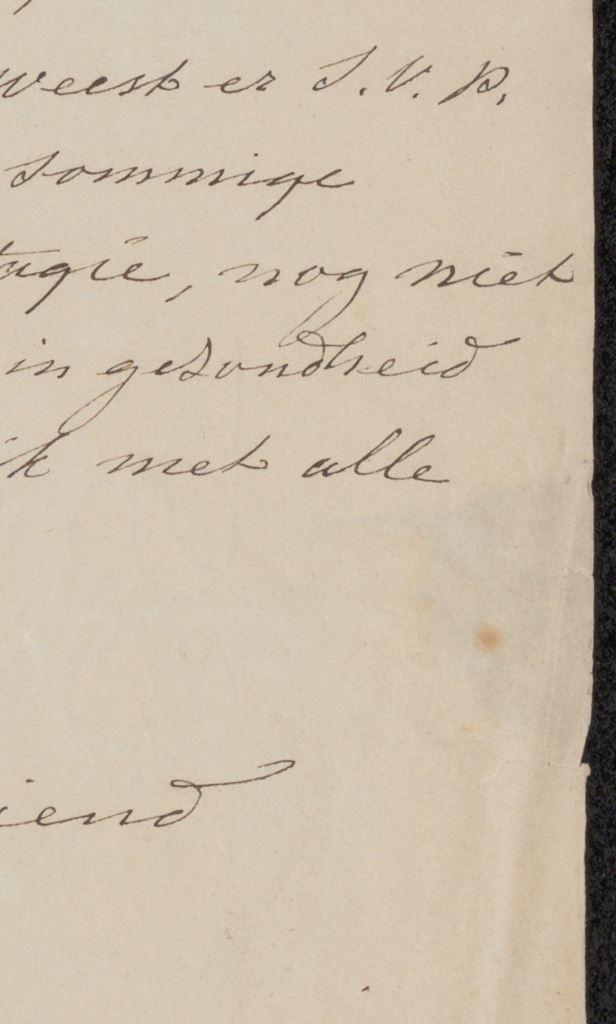 weest er S.V.P.
sommige
tagie, nog niet
in gezondheid
ik met alle
iend